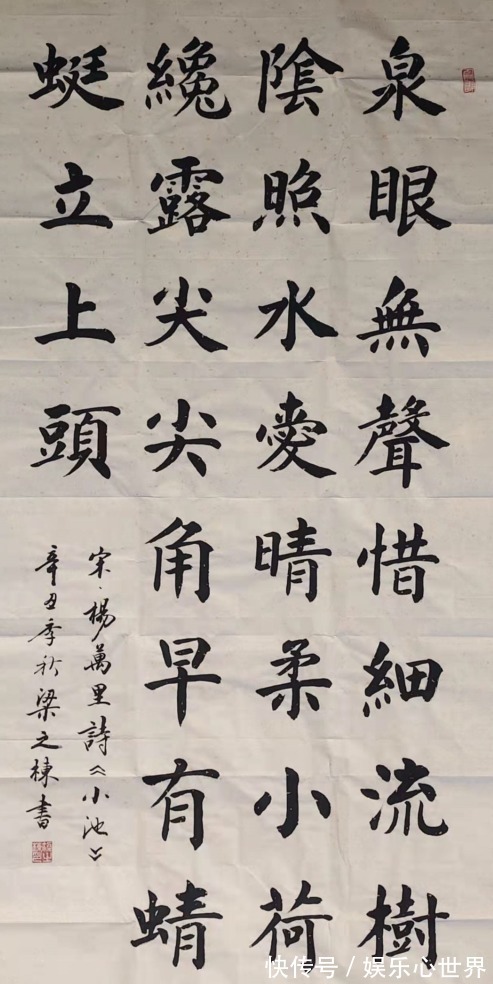 泉眼無聲惜細流樹
陰照水愛晴柔小荷
纔露尖尖角早有蜻
蜓立上頭
宋·楊萬里詩《小池》
辛丑季秋梁之棟書
快传号/娱乐心世界